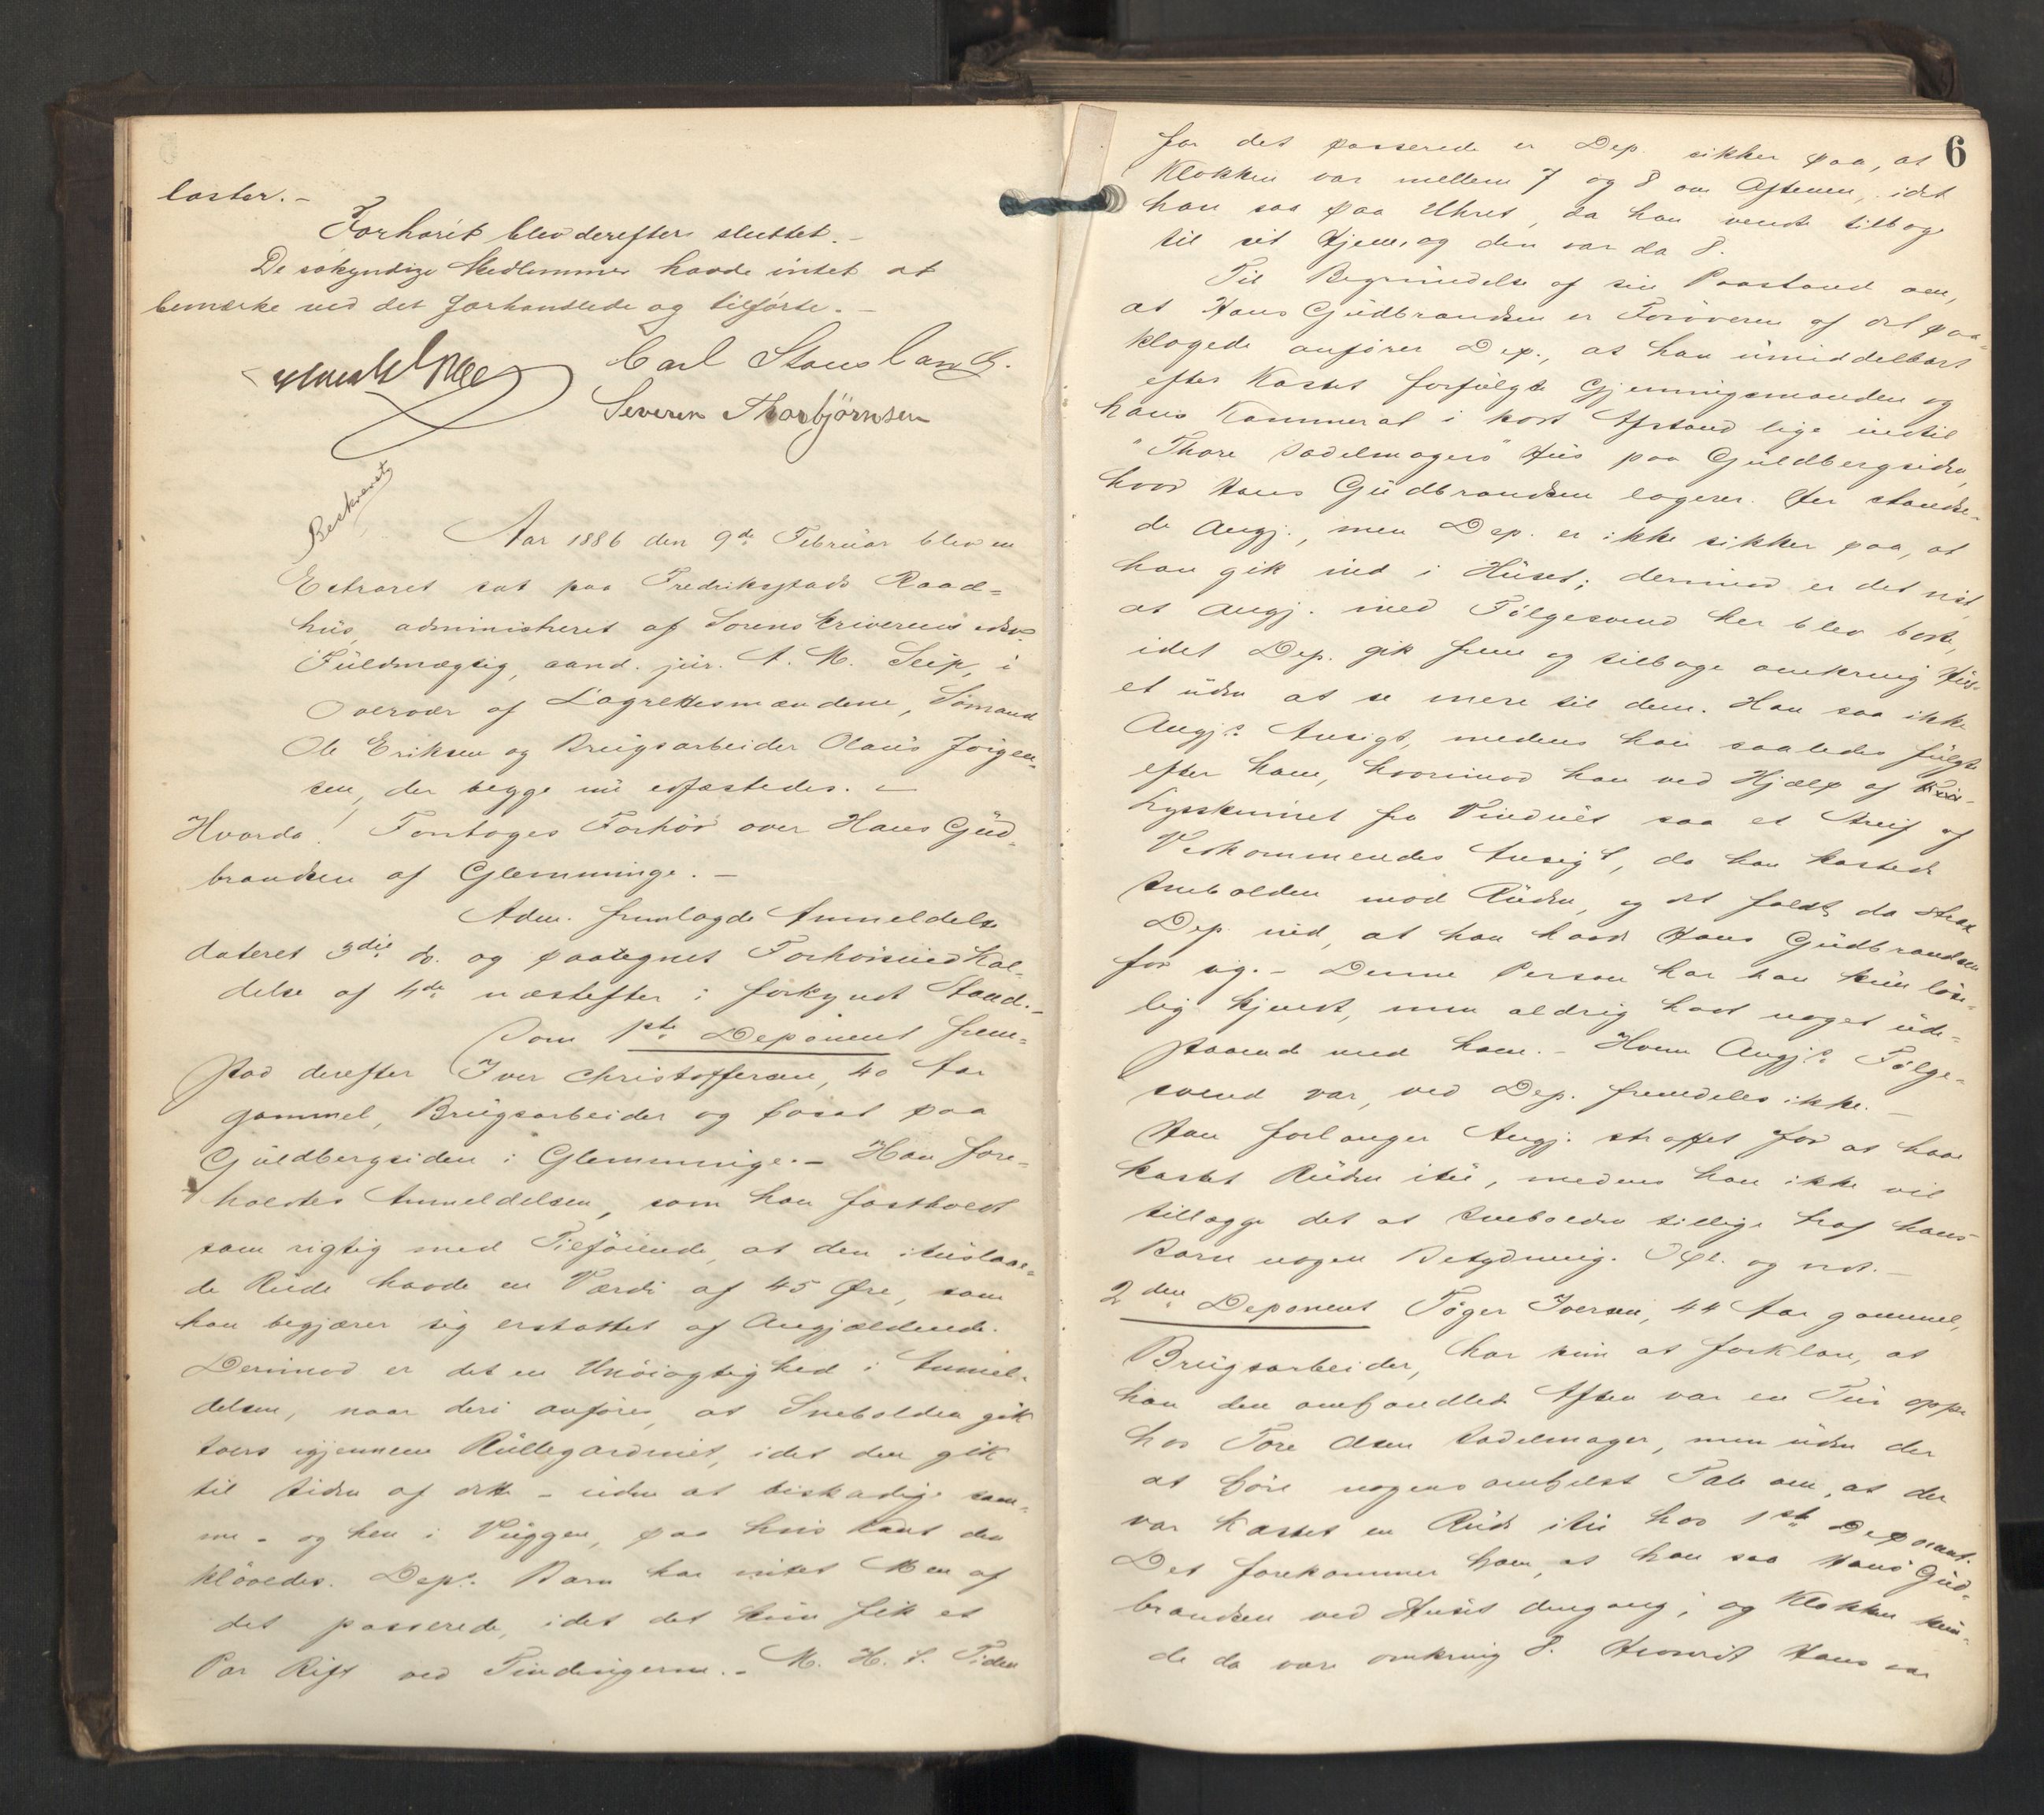 laster.-
Forhöret blev derefter sluttet.-
De sakyndige Medlemmer havde intet at
bemærke ved det forhandlede og tilförte.-
Carl Stausland.
Severin Thorbjörnsen
Beskrevet
Aar 1886 den 9de Februar blev en
Extraret sat paa Fredriksstads Raad-
hus, administreret af Sorenskriverens edsv.
Fuldmægtig, cand. jur. A. M. Seip, i
Overvær af Lagrettesmændene, Sömand
Ole Eriksen og Brugsarbeider Olaus Jörgen-
sen, der begge nu edfæstedes.-
Hvorda! Foretoges Forhör over Hans Gud-
brandsen af Glemminge.-
Adm. fremlagde Anmeldelse
dateret 3die ds. og paategnet Forhörsindkal-
delse af 4de næstefter i forkyndt Stand.-
Som 1ste Deponent frem-
stod derefter Iver Christoffersen, 40 Aar
gammel, Brugsarbeider og bosat paa
Guldbergsiden i Glemminge.- Han fore-
holdtes Anmeldelsen, som han fastholdt
som rigtig med Tilföiende, at den ituslaae-
de Rude havde en Værdi af 45 Øre, som
han begjærer sig erstattet af Angjældende.
Derimod er det en Unöiagtighed i Anmel-
delsen, naar deri anföres, at Snebolden gik
tvers igjennem Rullegardinet, idet den gik
til Siden af dette - uden at beskadige sam-
me - og hen i Vuggen, paa hvis Kant den
klövedes. Dep.s Barn har intet Men af
det passerede, idet det kun fik et
Par Rift ved Tindingerne.- M. H. t. Tiden
6
for det passerede er Dep. sikker paa, at
Klokken var mellem 7 og 8 om Aftenen, idet
han saa paa Uhret, da han vendte tilbage
til sit Hjem, og den var da 8.
Til Begrundelse af sin Paastand om,
at Hans Gudbrandsen er Forøveren af det paa-
klagede anförer Dep., at han umiddelbart
efter Kastet forfulgte Gjerningsmanden og
hans Kammerat i kort Afstand lige indtil
"Thore Sadelmagers" Hus paa Guldbergsiden,
hvor Hans Gudbrandsen logerer. Her standse-
de Angj., men Dep. er ikke sikker paa, at
han gik ind i Huset; derimod er det vist,
at Angj. med Fölgesvend her blev borte,
idet Dep. gik frem og tilbage omkring Hus-
et uden at se mere til dem. Han saa ikke
Angj.s Ansigt, medens han saaledes fulgte
efter ham, hvorimod han ved Hjælp af
Lysskinnet fra Vinduet saa et Streif af
Vedkommendes Ansigt, da han kastede
Snebolden mod Ruden, og det faldt da strax
Dep. ind, at han havde Hans Gudbrandsen
for sig.- Denne Person har han kun löse-
lig kjendt, men aldrig havt noget ude-
staaende med ham.- Hvem Angj.s Fölge-
svend var, ved Dep. fremdeles ikke.-
Han forlanger Angj. straffet for at have
kastet Ruden itu, medens han ikke vil
tillægge det at Snebolden tillige traf hans
Barn nogen Betydning. Opl. og ved.-
2den Deponent Töger Iversen, 44 Aar gammel,
Brugsarbeider, har kun at forklare, at
han den omhandlede Aften var en Tur oppe
hos Tore Olsen Sadelmager, men uden der
at höre nogensomhelst Tale om, at der
var kastet en Rude itu hos 1ste Deponent.
Det forekommer ham, at han saa Hans Gud-
brandsen ved Huset dengang, og Klokken kun-
de da være omkring 8. Hvorvidt Hans var